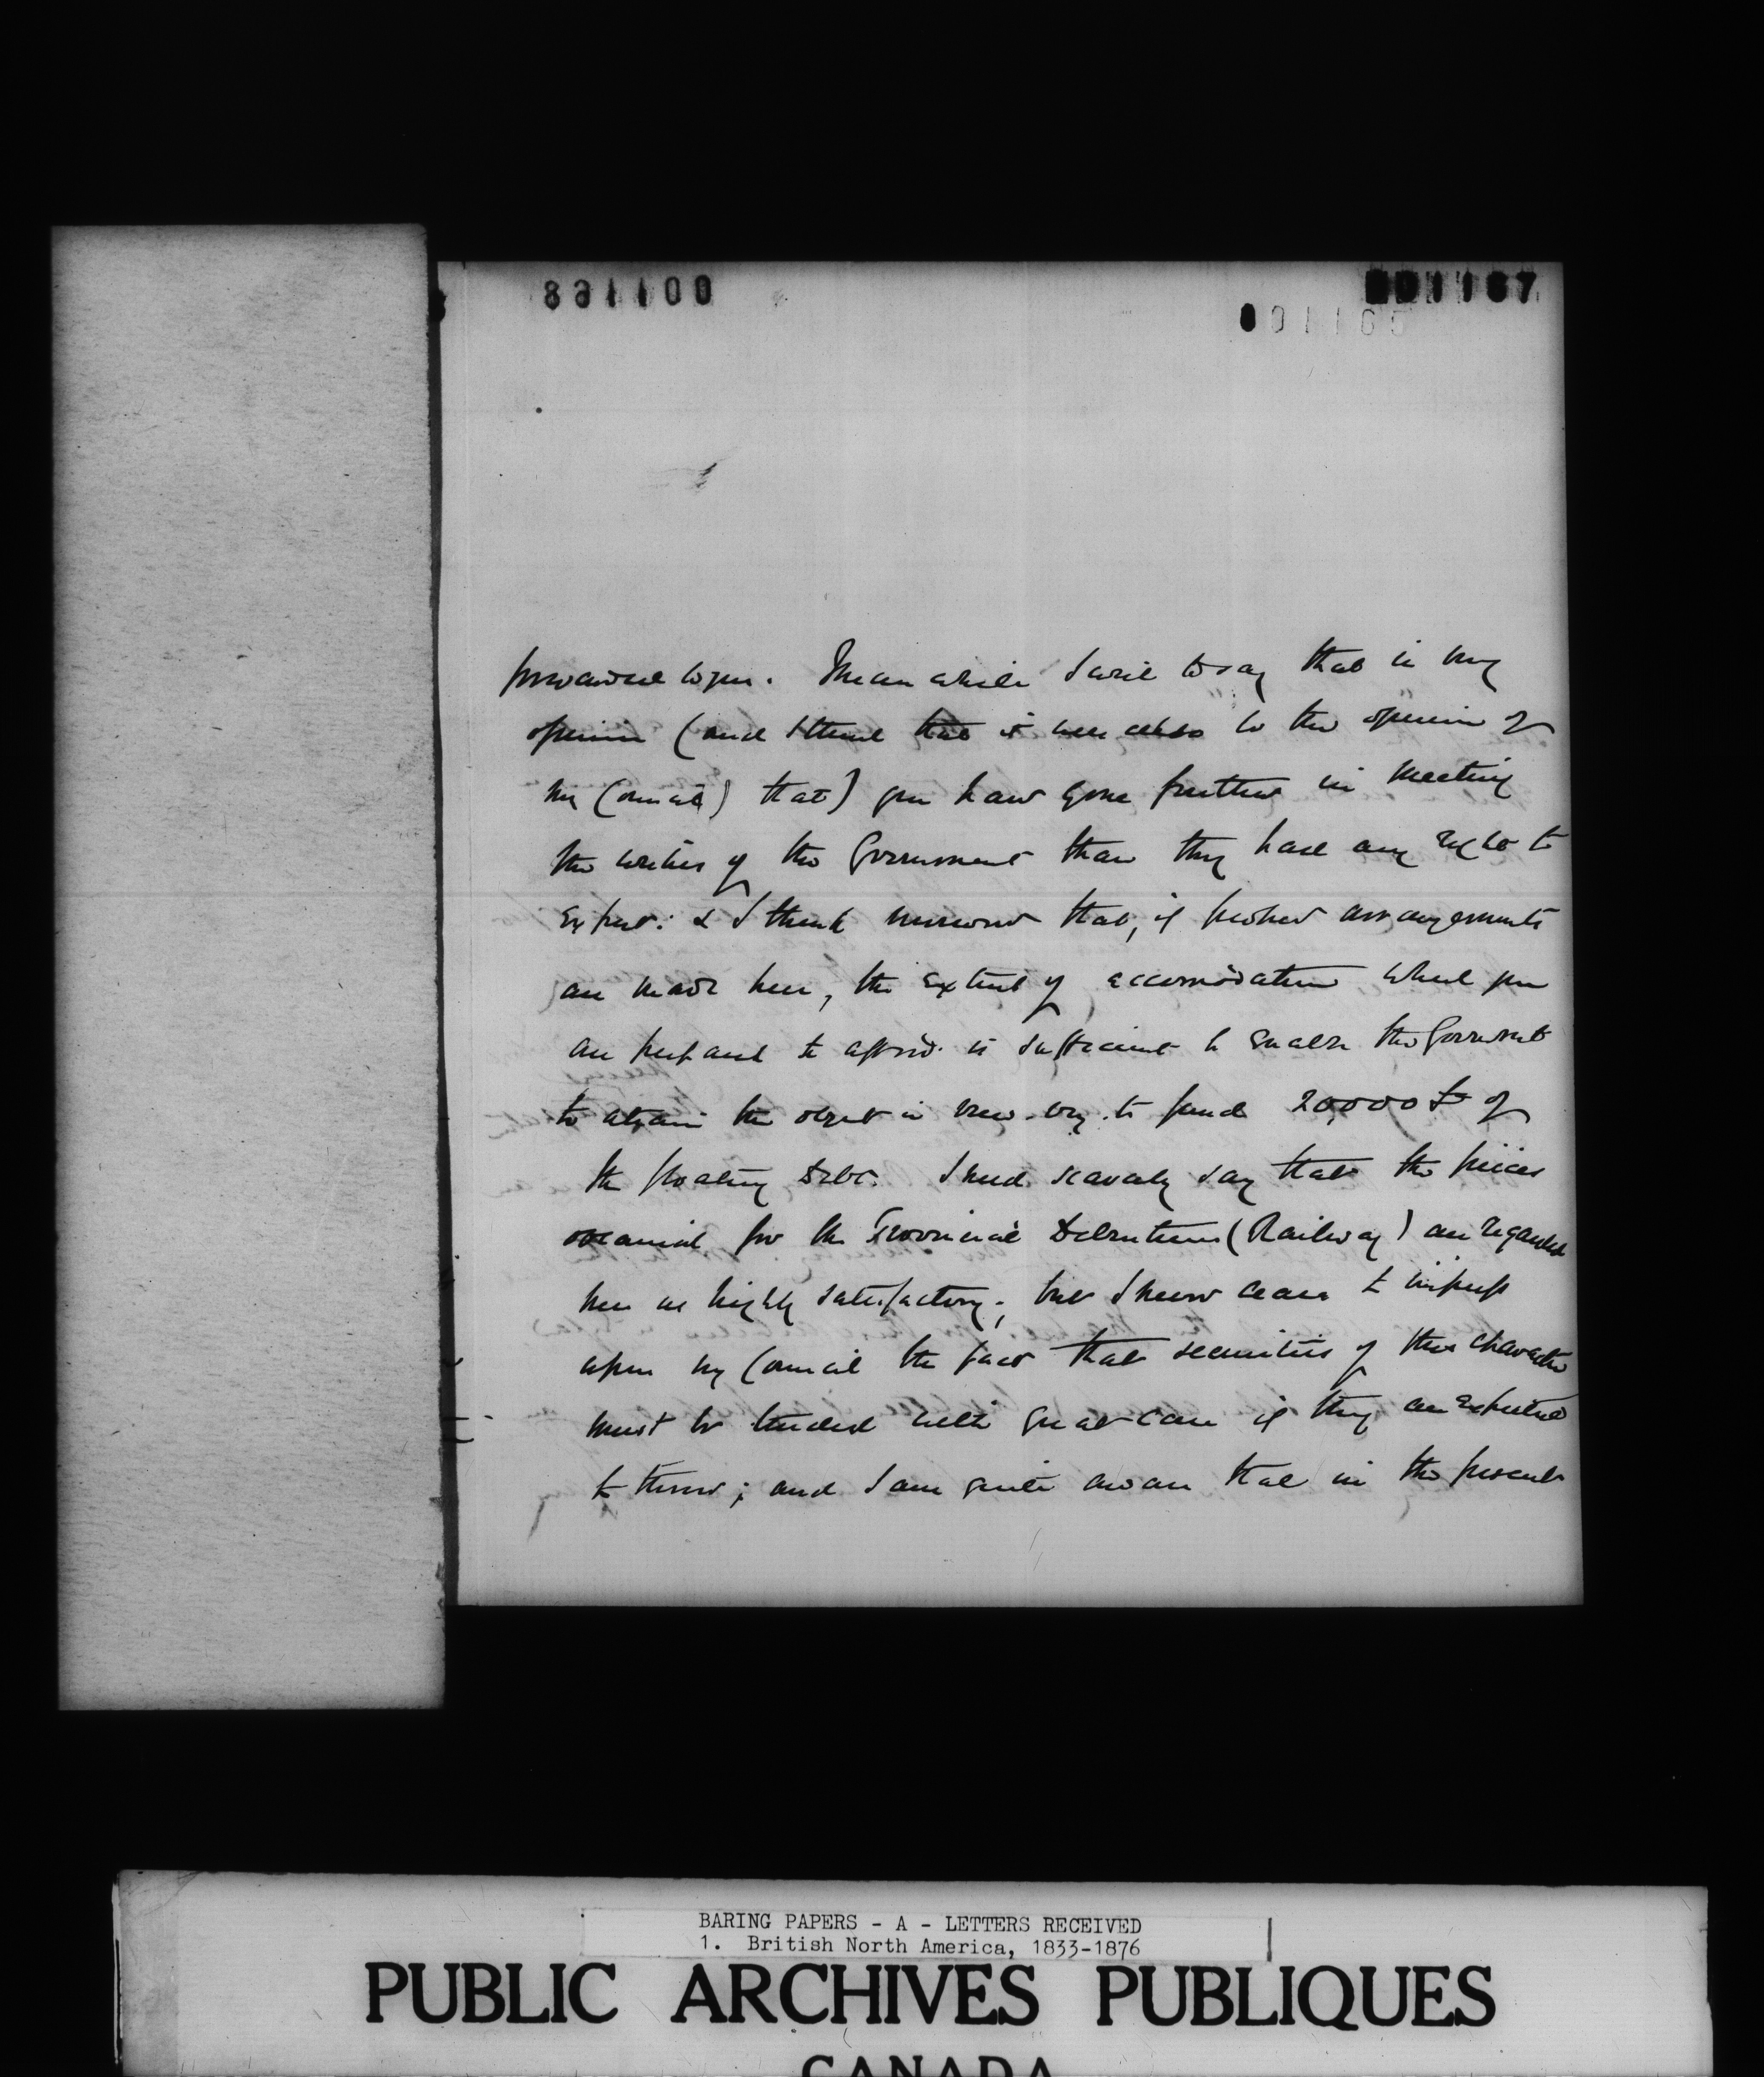 001168
001167
001165
forwarded to you. Meanwhile I wish to say that in my
opinion (and I think that it will also be the opinion of
my Council) that) you have gone further in meeting
the wishes of the Government than they have any right to
expect: & I think moreover that, if proper arrangements
are made here, the extent of accomodation which you
are prepared to afford is sufficient to enable the Government
to attain the object in view viz. to fund 20,000 £ of
the floating debt. I need scarcely say that the prices
obtained for the Provincial Debentures (Railway) are regarded
here as highly satisfactory; but I never cease to impress
upon my Council the fact that securities of this character
must be tended with great care if they are expected
to thrive; and I am quite aware that in the present
BARING PAPERS - A - LETTERS RECEIVED
1. British North America, 1833-1876
PUBLIC ARCHIVES PUBLIQUES
CANADA